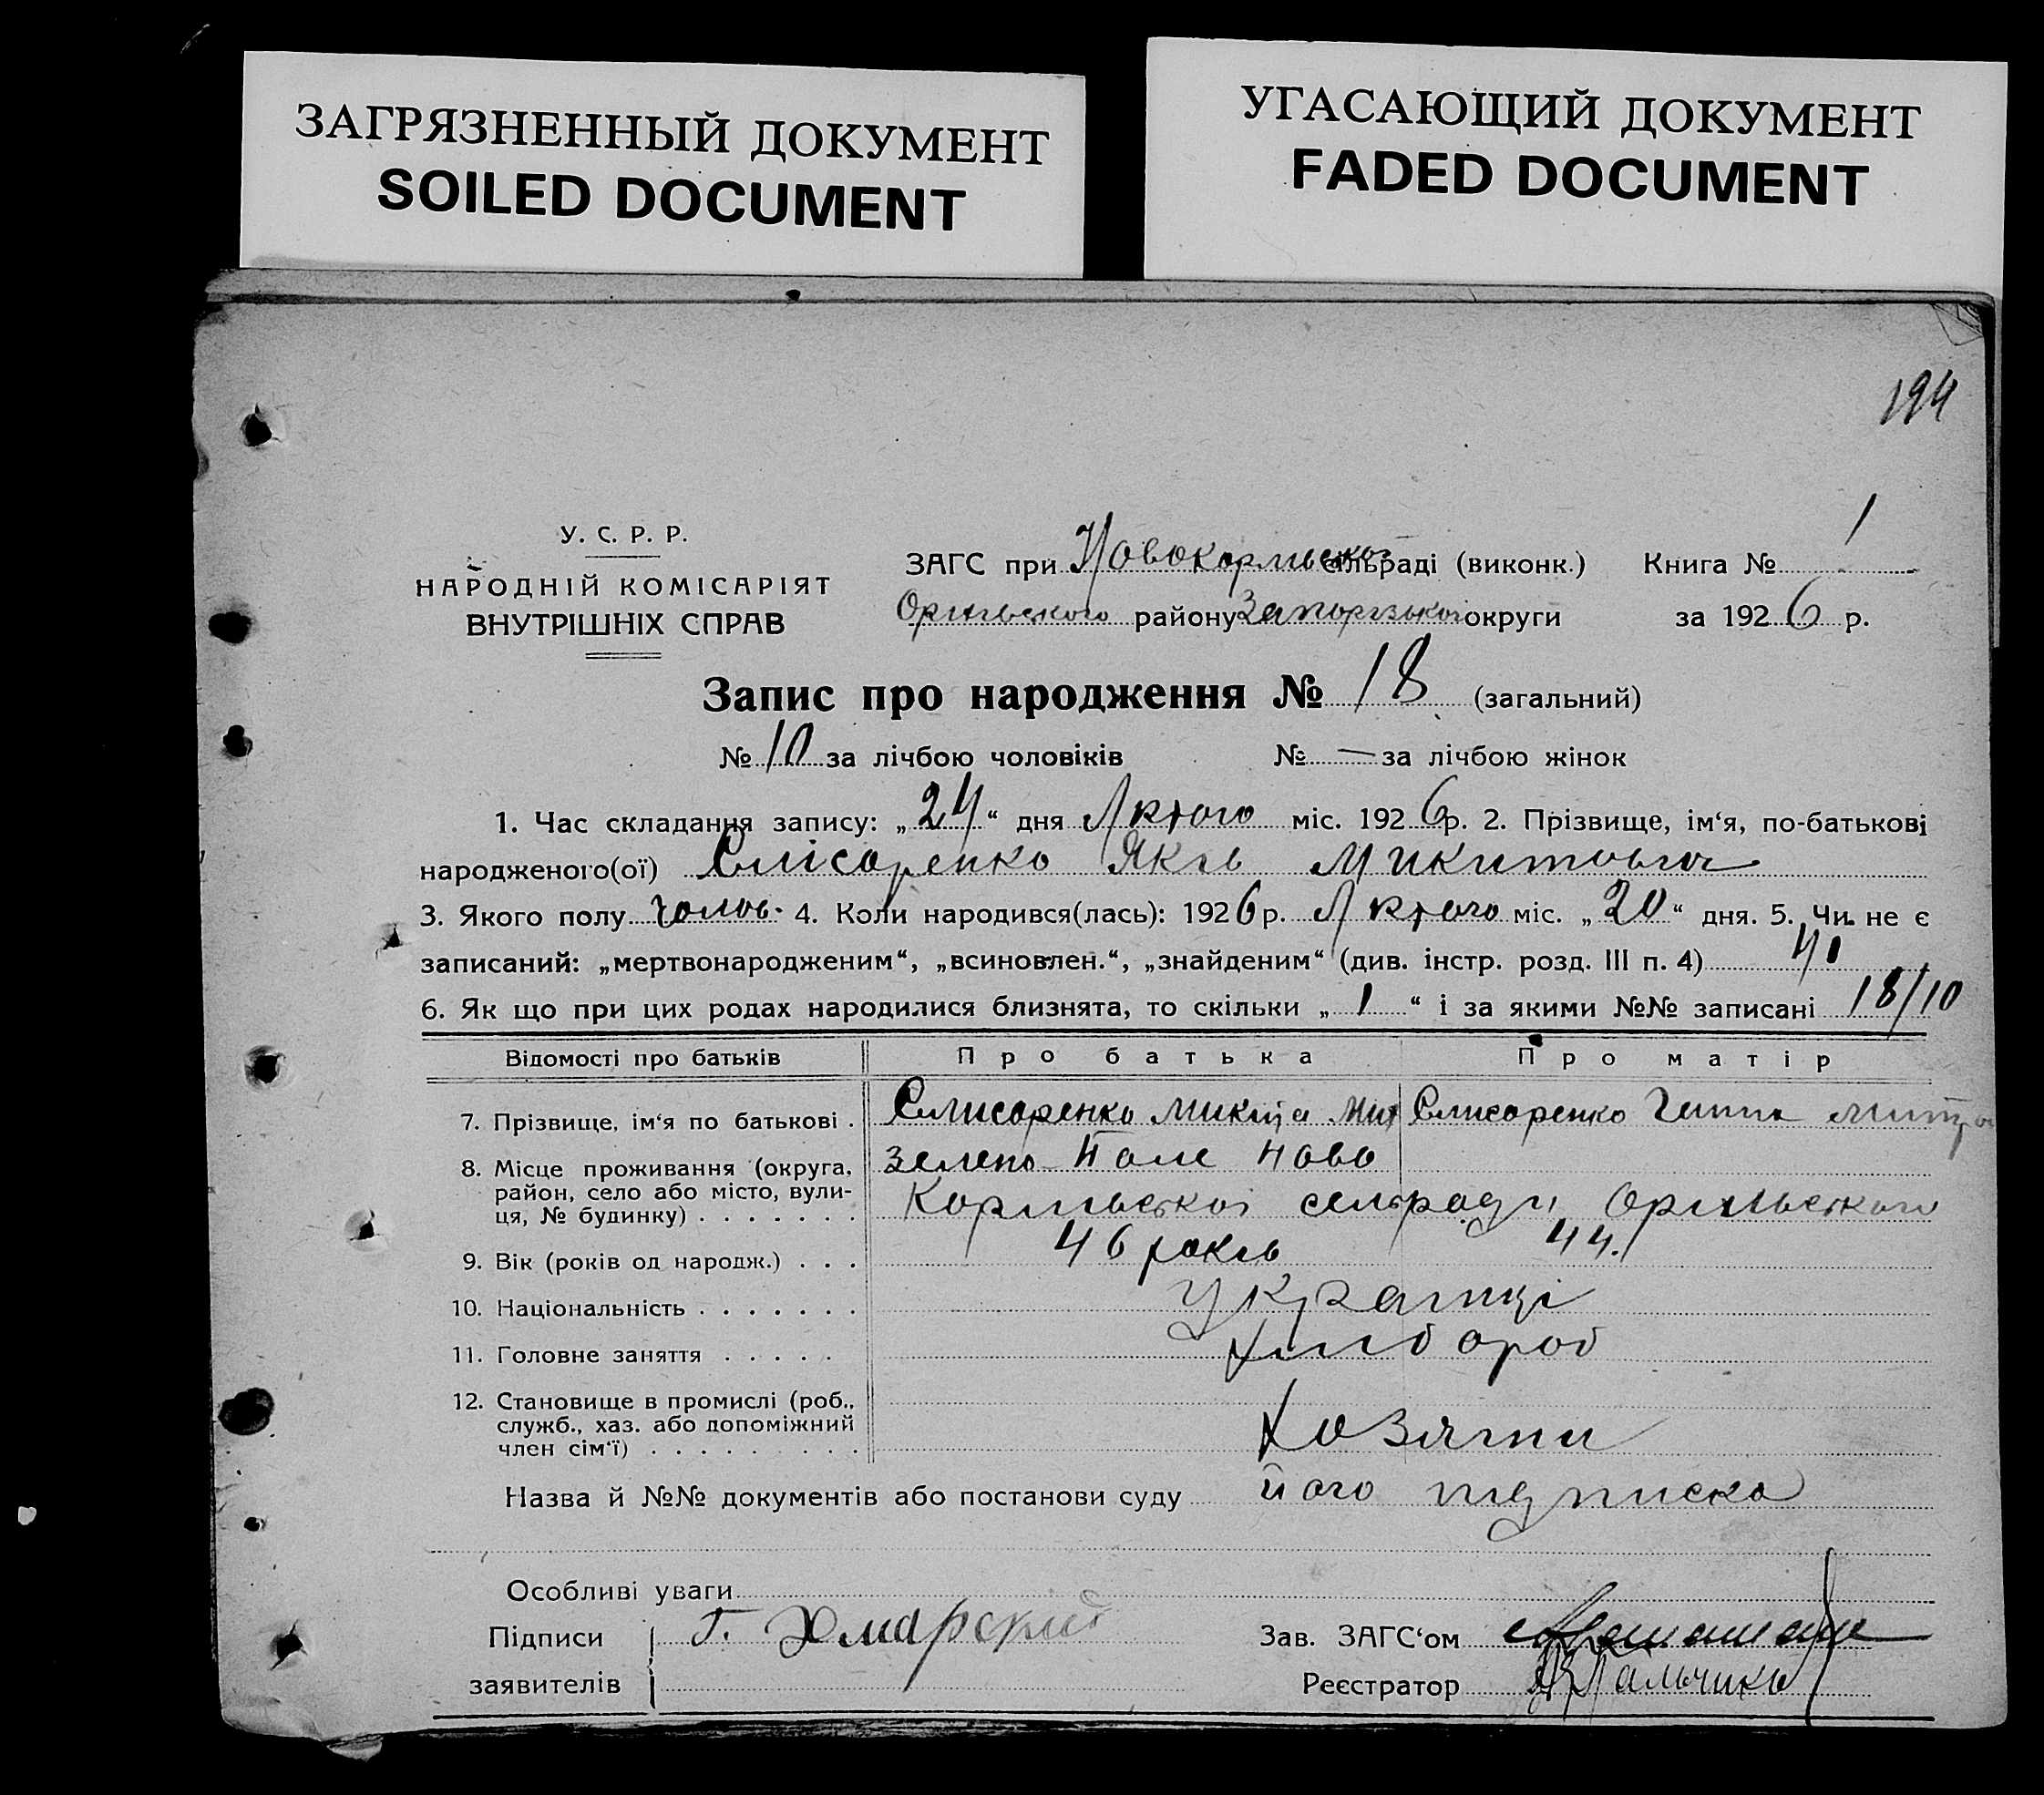 ЗАГРЯЗНЕННЫЙ ДОКУМЕНТ
SOILED DOCUMENT
УГАСАЮЩИЙ ДОКУМЕНТ
FADED DOCUMENT
194
У. С. Р. Р.
НАРОДНІЙ КОМІСАРІЯТ
ВНУТРІШНІХ СПРАВ
ЗАГС при сільраді (виконк.) Книга № 1
району Запорізької округи за 1926 р.
Запис про народження № 18 (загальний)
№ 10 за лічбою чоловіків № — за лічбою жінок
1. Час складання запису: „24“ дня Лютого міс. 1926 р. 2. Прізвище, ім‘я, по-батькові
народженого(ої) Єлісаренко Яків Микитович
3. Якого полу чолов. 4. Коли народився(лась): 1926 р. Лютого міс. „20“ дня. 5. Чи не є
записаний: „мертвонародженим“, „всиновлен.“, „знайденим“ (див. інстр. розд. III п. 4) ні
6. Як що при цих родах народилися близнята, то скільки „1“ і за якими №№ записані 18/10
Відомості про батьків Про батька Про матір
7. Прізвище, ім‘я по батькові . Єлисаренко Микита Мит Єлисаренко Ганна Митро
8. Місце проживання (округа, Зелено Поле Ново
район, село або місто, вули-
ця, № будинку) . . . . . . . сельради
9. Вік (років од народж.) . . . 46 років 44.
10. Національність . . . . . . . Українці
11. Головне заняття . . . . . Хлібороб
12. Становище в промислі (роб.,
служб., хаз. або допоміжний
член сім‘ї) . . . . . . . . . Хозяїни
Назва й №№ документів або постанови суду його підписка
Особливі уваги
Підписи Г. Хмарский Зав. ЗАГС‘ом
заявителів Реєстратор